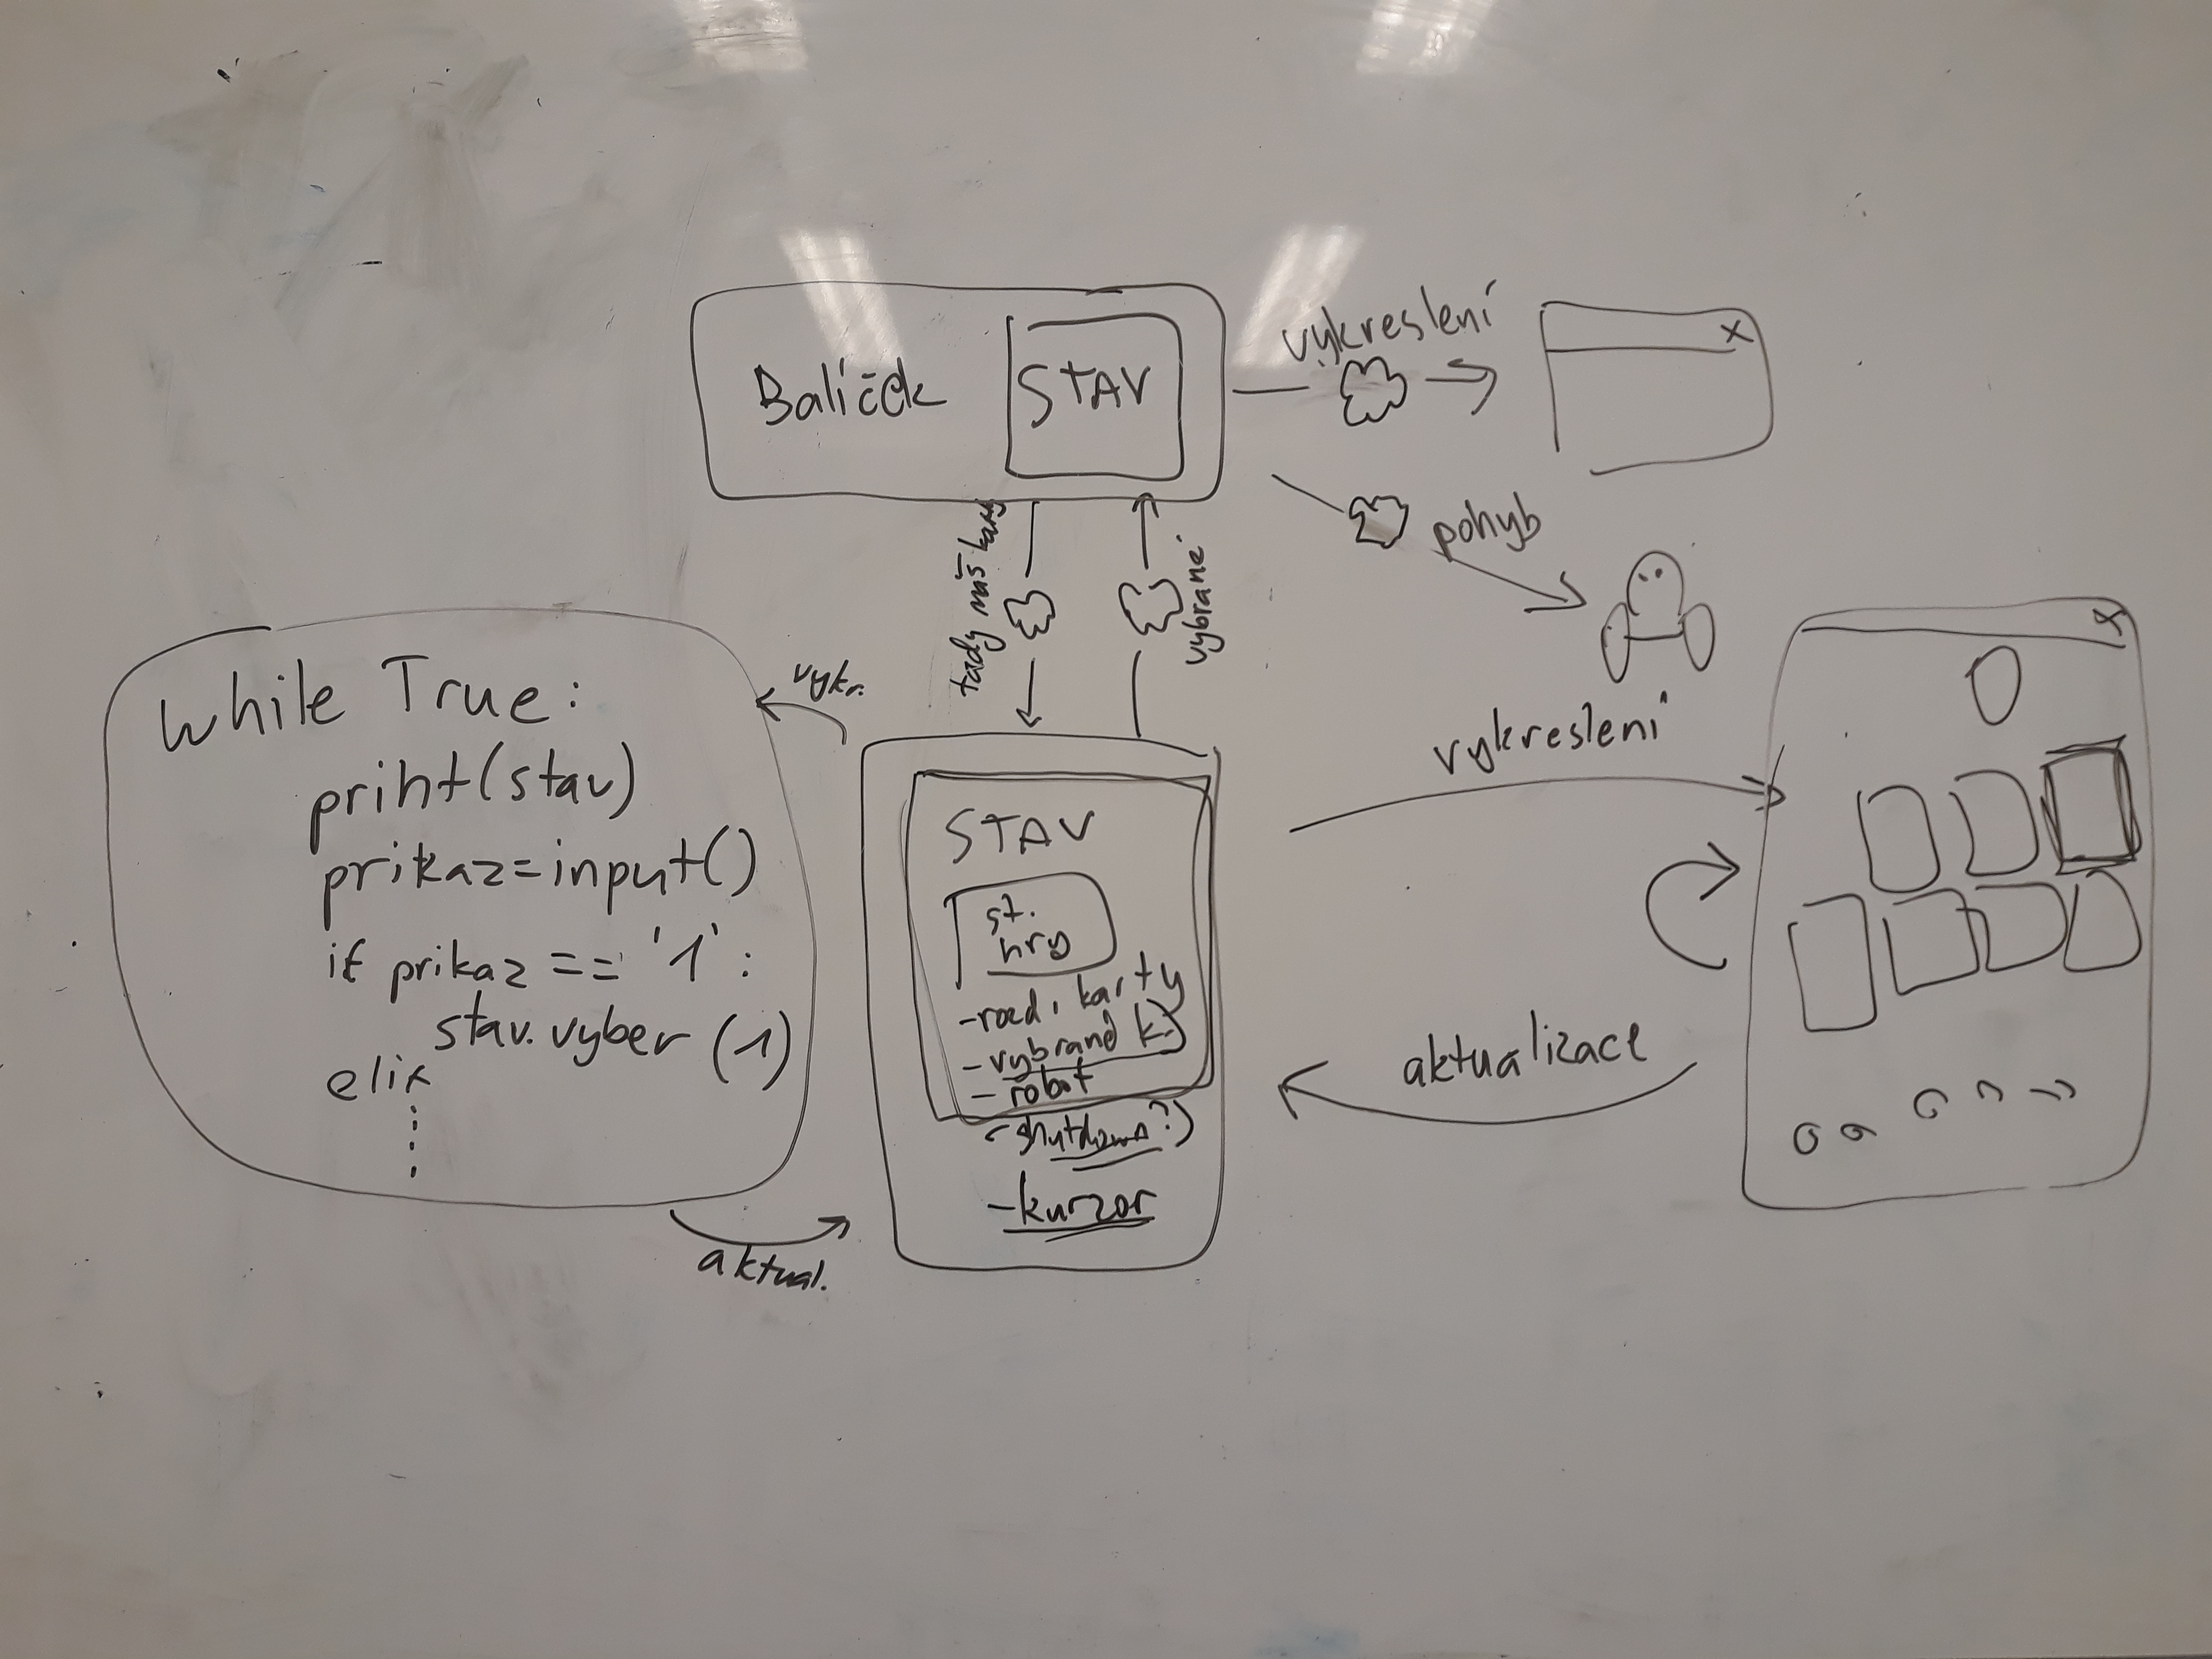 Balíček
STAV
vykreslení
x
pohyb
tady máš karty
vybrané
vykr.
while True:
print(stav)
prikaz=input()
if prikaz == '1':
stav.vyber (1)
elif
aktual.
STAV
st.
hry
- rozd. karty
- vybrané k.
- robot
(-shutdown?)
- kurzor
vykreslení
aktualizace
x